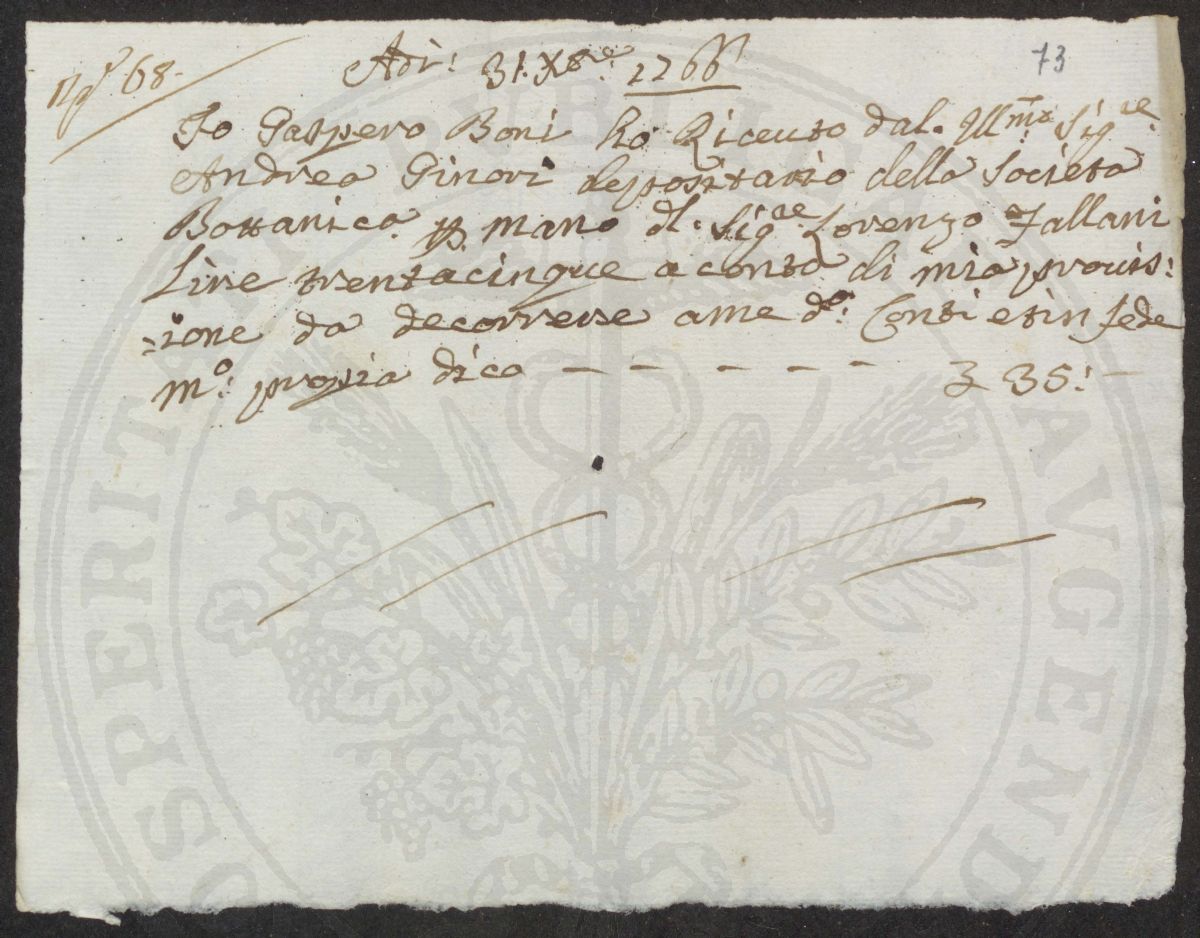 N.º 68. Adì: 31. Xbre: 1766 73
Io Gaspero Boni ho Riceuto dal. Illmo: Sigre:
Andrea Ginori depositario della Società
Bottanica p mano dl. Sigre Lorenzo Fallani
Lire trentacinque a conto di mia prouis:
=ione da decorrere a me do: Conti et in fede
mo: propia dico — — — — — — £ 35: —
PROSPERITATI PVBLICAE AVGENDAE